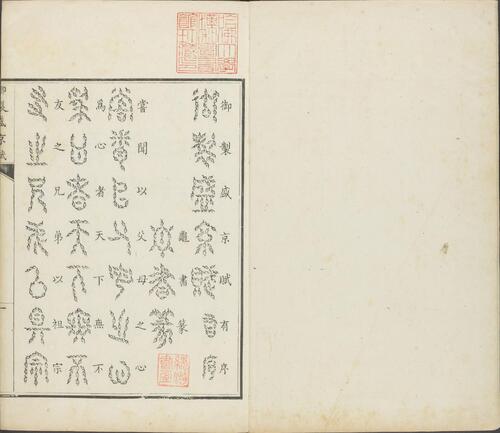 御製盛京賦有序
龜書篆
嘗聞以父母之心
為心者天下無不
友之兄弟以祖宗
御製盛京賦